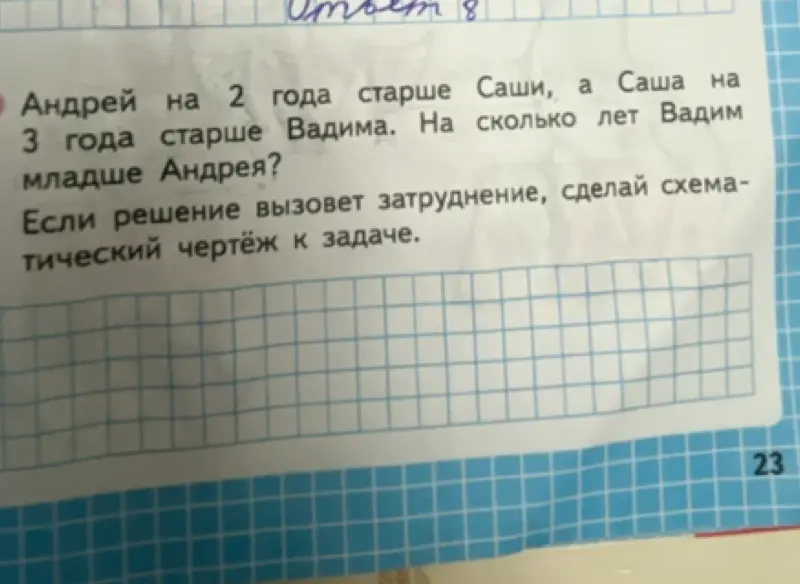 Ответ 8
Андрей на 2 года старше Саши, а Саша на
3 года старше Вадима. На сколько лет Вадим
младше Андрея?
Если решение вызовет затруднение, сделай схема-
тический чертёж к задаче.
23